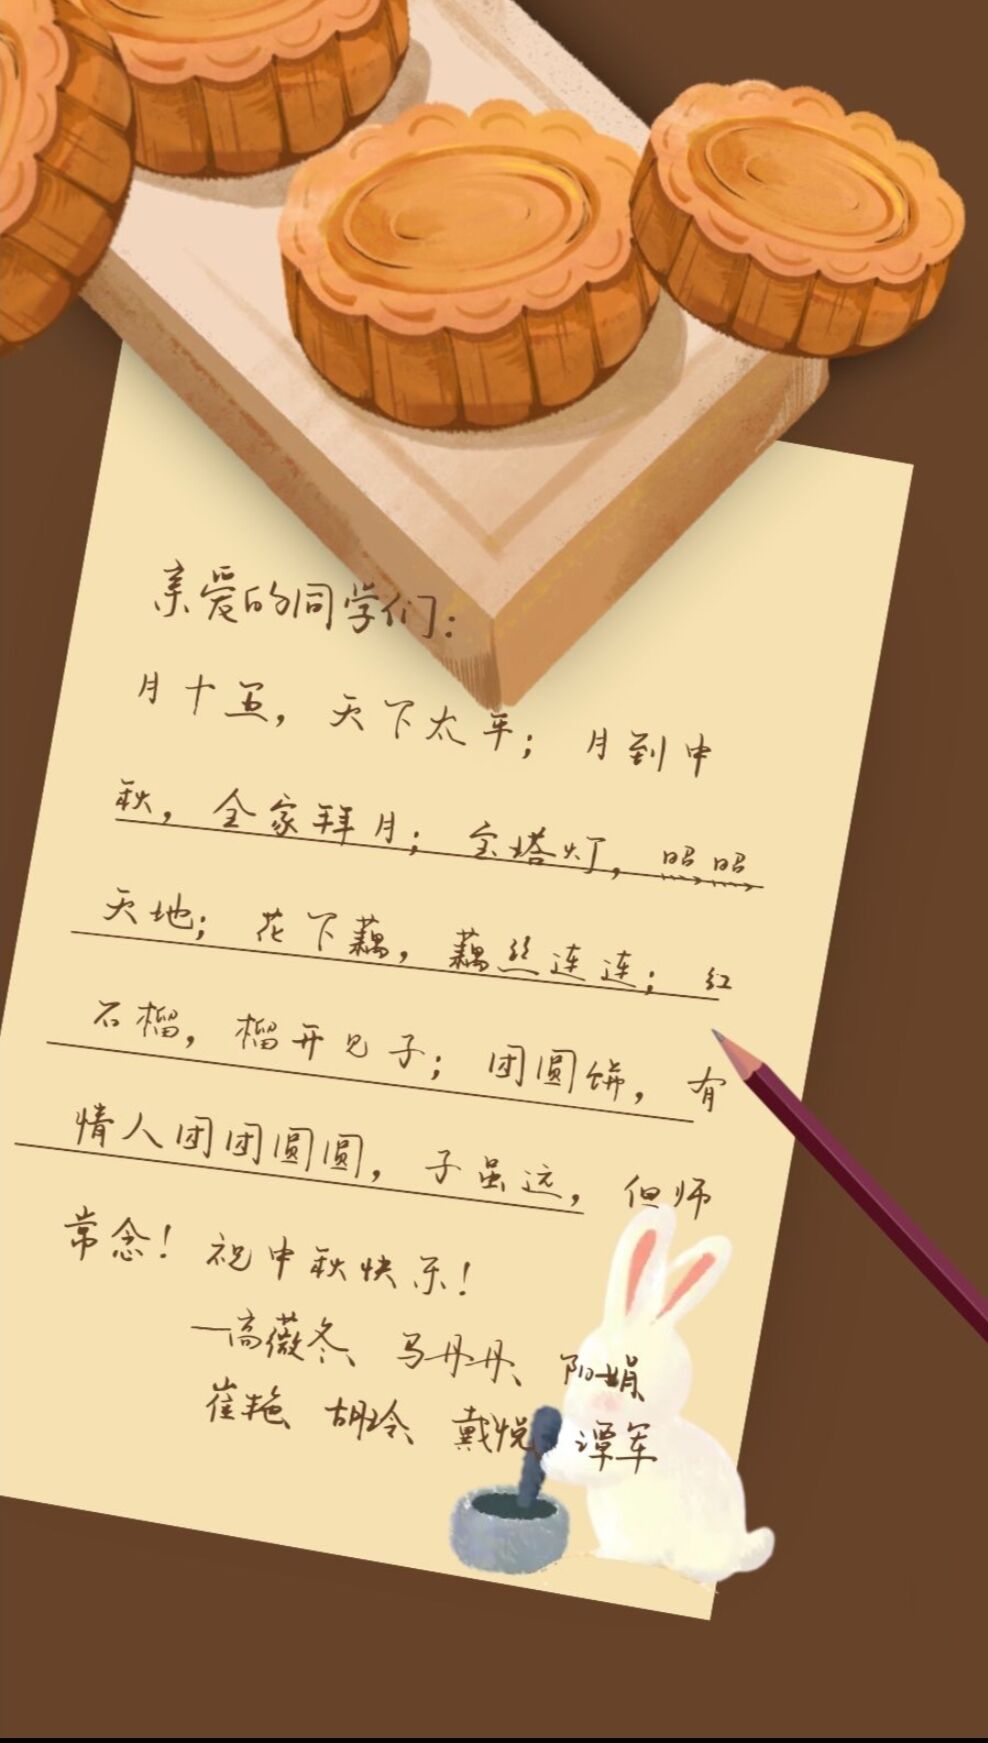 亲爱的同学们：
月十五，天下太平；月到中
秋，全家拜月；宝塔灯，照照
天地；花下藕，藕丝连连；红
石榴，榴开见子；团圆饼，有
情人团团圆圆，子虽远，但师
常念！祝中秋快乐！
—高薇冬、马丹丹、阳娟
崔艳、胡玲、戴悦、谭军